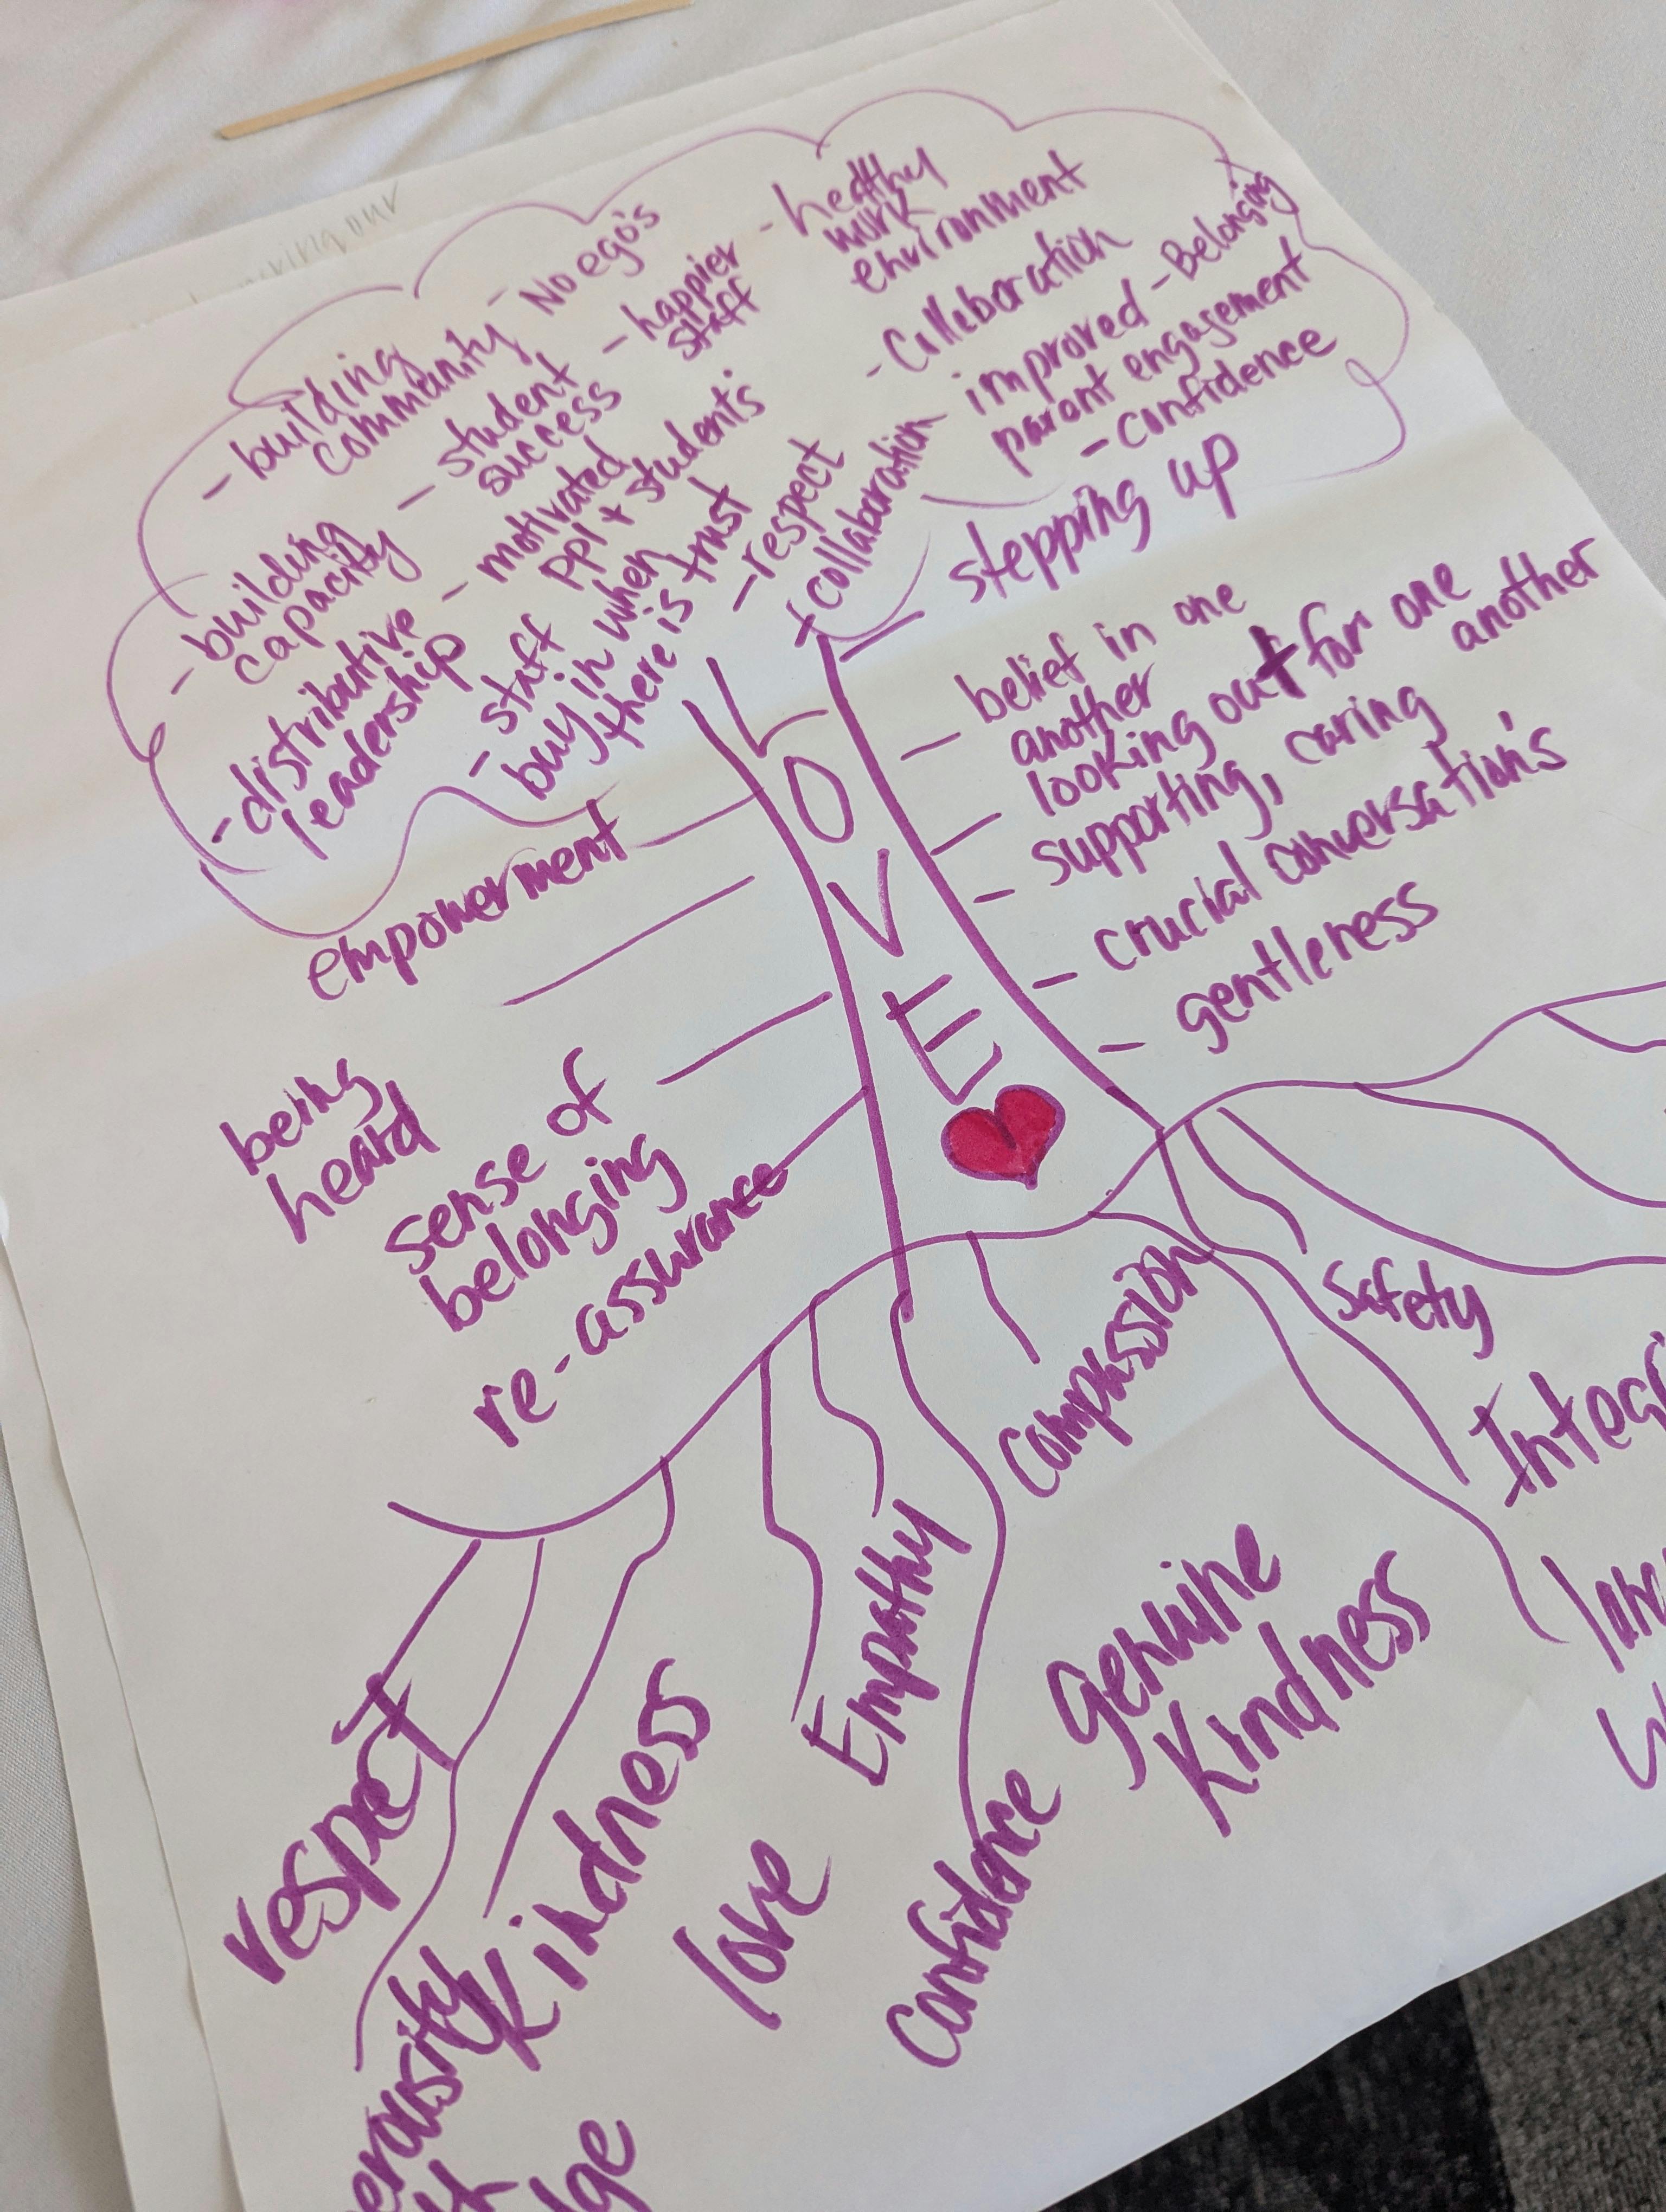 - No ego's
- healthy
work
environment
- building
community
- happier
staff
- student
success
- Collaboration
- Belonging
improved
parent engagement
- confidence
- building
capacity
- motivated
ppl + students
- distributive
leadership
- staff
buy in when
there is trust
- respect
+ collaboration
- stepping up
- belief in one
another
- looking out for one
another
- supporting, caring
- crucial conversation's
- gentleness
LOVE
empowerment
being
heard
sense of
belonging
re-assurance
respect
Kindness
love
Empathy
Confidence
Compassion
Genuine
Kindness
Safety